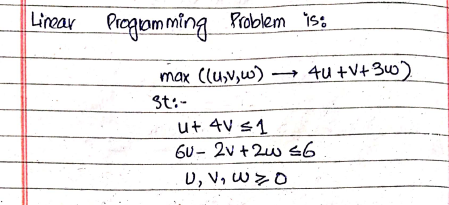 Linear Programming Problem is:
max ((u,v,w) → 4u + v + 3w)
st:-
u + 4v ≤ 1
6u - 2v + 2w ≤ 6
u, v, w ≥ 0